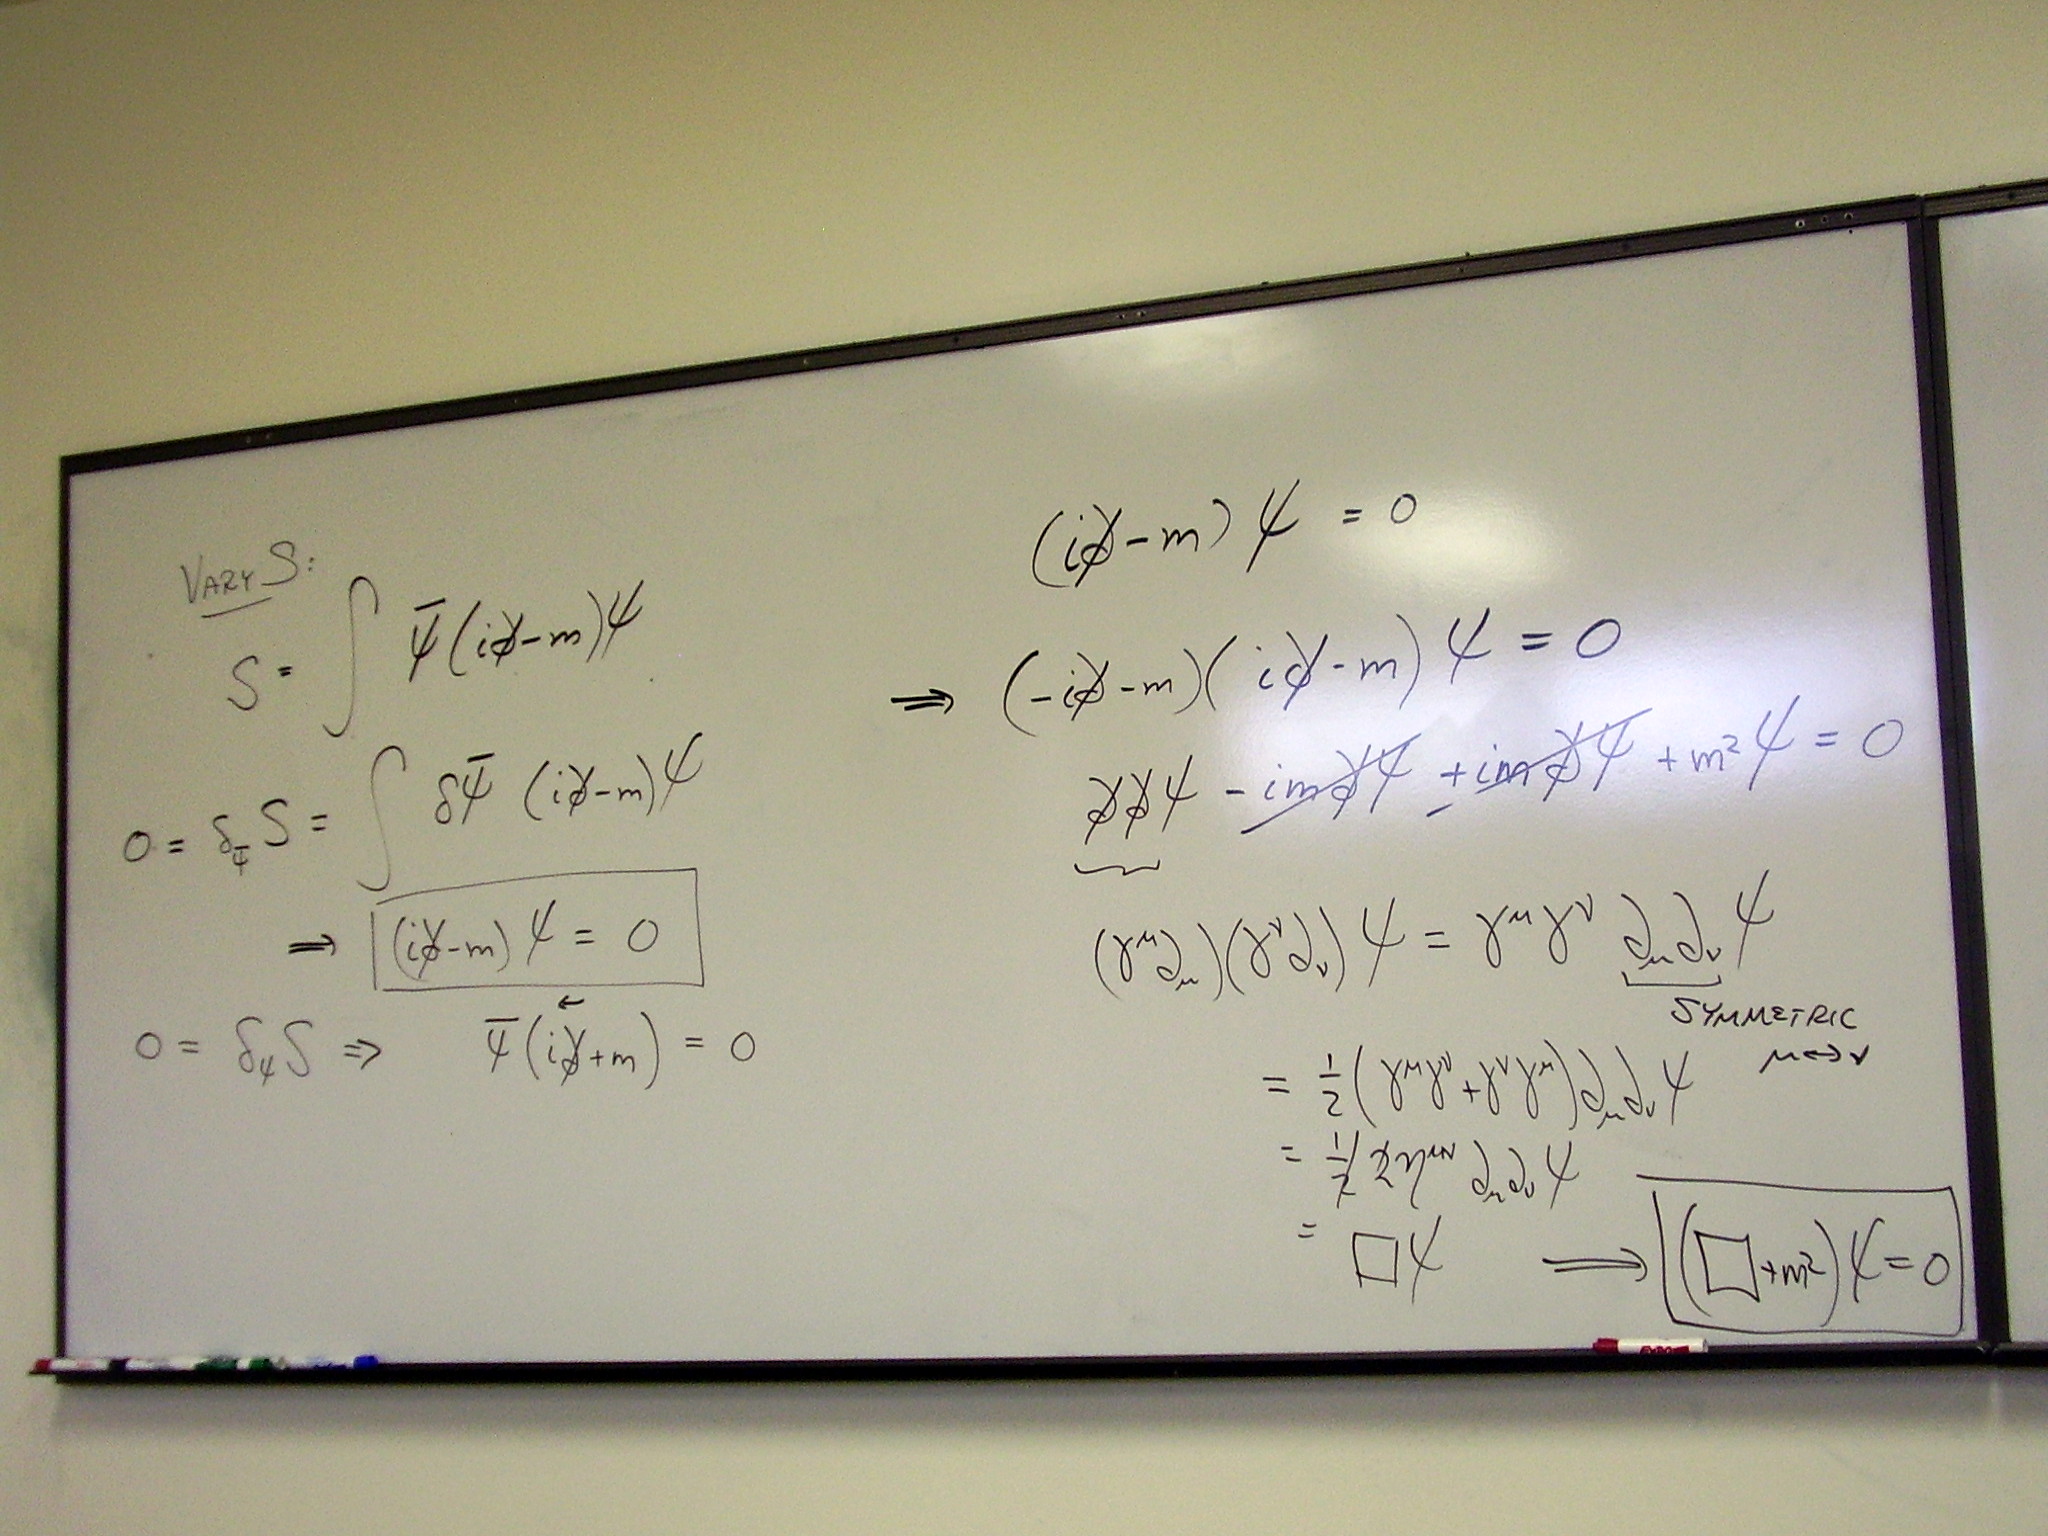 VARY S:
S = ∫ ψ̄(i∂̸-m)ψ
0 = δ_ψ̄ S = ∫ δψ̄ (i∂̸-m)ψ
⇒ (i∂̸-m)ψ = 0
0 = δ_ψ S ⇒ ψ̄(i∂̸⃖+m) = 0
(i∂̸-m)ψ = 0
⇒ (-i∂̸-m)(i∂̸-m)ψ = 0
∂̸∂̸ψ - im∂̸ψ + im∂̸ψ + m²ψ = 0
(γ^μ∂_μ)(γ^ν∂_ν)ψ = γ^μγ^ν ∂_μ∂_νψ
SYMMETRIC
μ↔ν
= 1/2(γ^μγ^ν+γ^νγ^μ)∂_μ∂_νψ
= 1/2 2η^μν ∂_μ∂_νψ
= □ψ ⟹ (□+m²)ψ=0